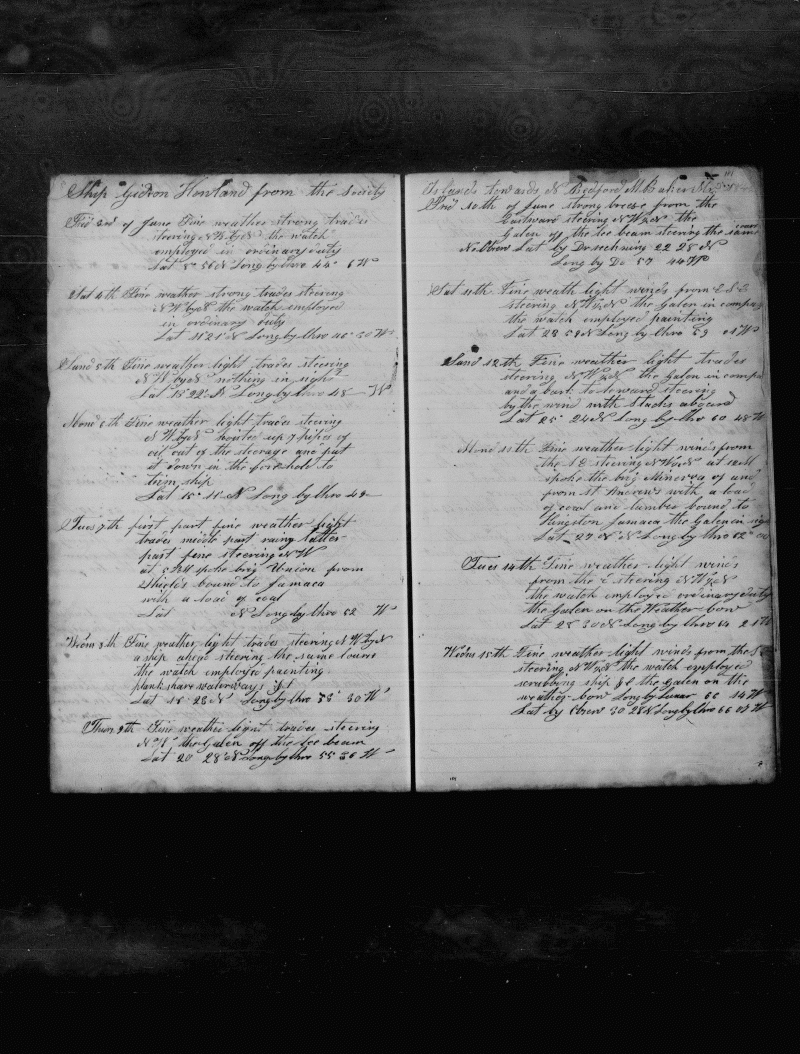 Ship Gideon Howland from the Society
Frid 3rd of June Fine weather strong trades
steering N W by N the watch
employed in ordinary duty
Lat 8° 56 N Long by Chro 44° 6 W
Sat 4th Fine weather strong trades steering
N W by N the watch employed
in ordinary duty
Lat 11 21 N Long by Chro 46° 30 W
Sund 5th Fine weather light trades steering
N W by N nothing in sight
Lat 13° 22 N Long by Chro 48 W
Mond 6th Fine weather light trades steering
N W by N hoisted up 7 pipes of
oil out of the steerage and put
it down in the forehold to
trim ship
Lat 15° 11 N Long by Chro 49
Tues 7th first part fine weather light
trades middle part rainy latter
part fine steering N W
at 5 PM spoke brig Union from
Shields bound to Jamaca
with a load of coal
Lat N Long by Chro 52 W
Wedns 8th Fine weather light trades steering N W by N
a ship ahead steering the same course
the watch employed painting
plank share waterways
Lat 18 28 N Long by Chro 53° 30 W
Thurs 9th Fine weather light trades steering
N W the Galen off the lee beam
Lat 20 28 N Long by Chro 55 36 W
Islands towards N Bedford M Baker
Frid 10th of June strong breeze from the
Eastward steering N W by N the
Galen off the lee beam steering the same
No Obsrv Lat by D reckning 22 28 N
Long by Do 57 44 W
Sat 11th Fine weath light winds from E S E
steering N W by N the Galen in compan
the watch employed painting
Lat 23 58 N Long by Chro 59 01 W
Sund 12th Fine weather light trades
steering N W by N the Galen in compa
and a bark to leward steering
by the wind with stacks aboard
Lat 25° 24 N Long by Chro 60 48 W
Mond 13th Fine weather light winds from
the S E steering N W by N at 12 M
spoke the brig Minerva of and
from St Andrews with a load
of coral and lumber bound to
Kingston Jamaca the Galen in sig
Lat 27 N Long by Chro 62°
Tues 14th Fine weather light winds
from the E steering N W by N
the watch employed ordinary duty
the Galen on the Weather bow
Lat 28 30 N Long by Chro 64 21 W
Wedns 15th Fine weather light winds from the S
steering N W by N the watch employed
scrubbing ship &c the Galen on the
weather bow Long by Lunar 66 14 W
Lat by Obsrv 30 28 N Long by Chro 66 04 W